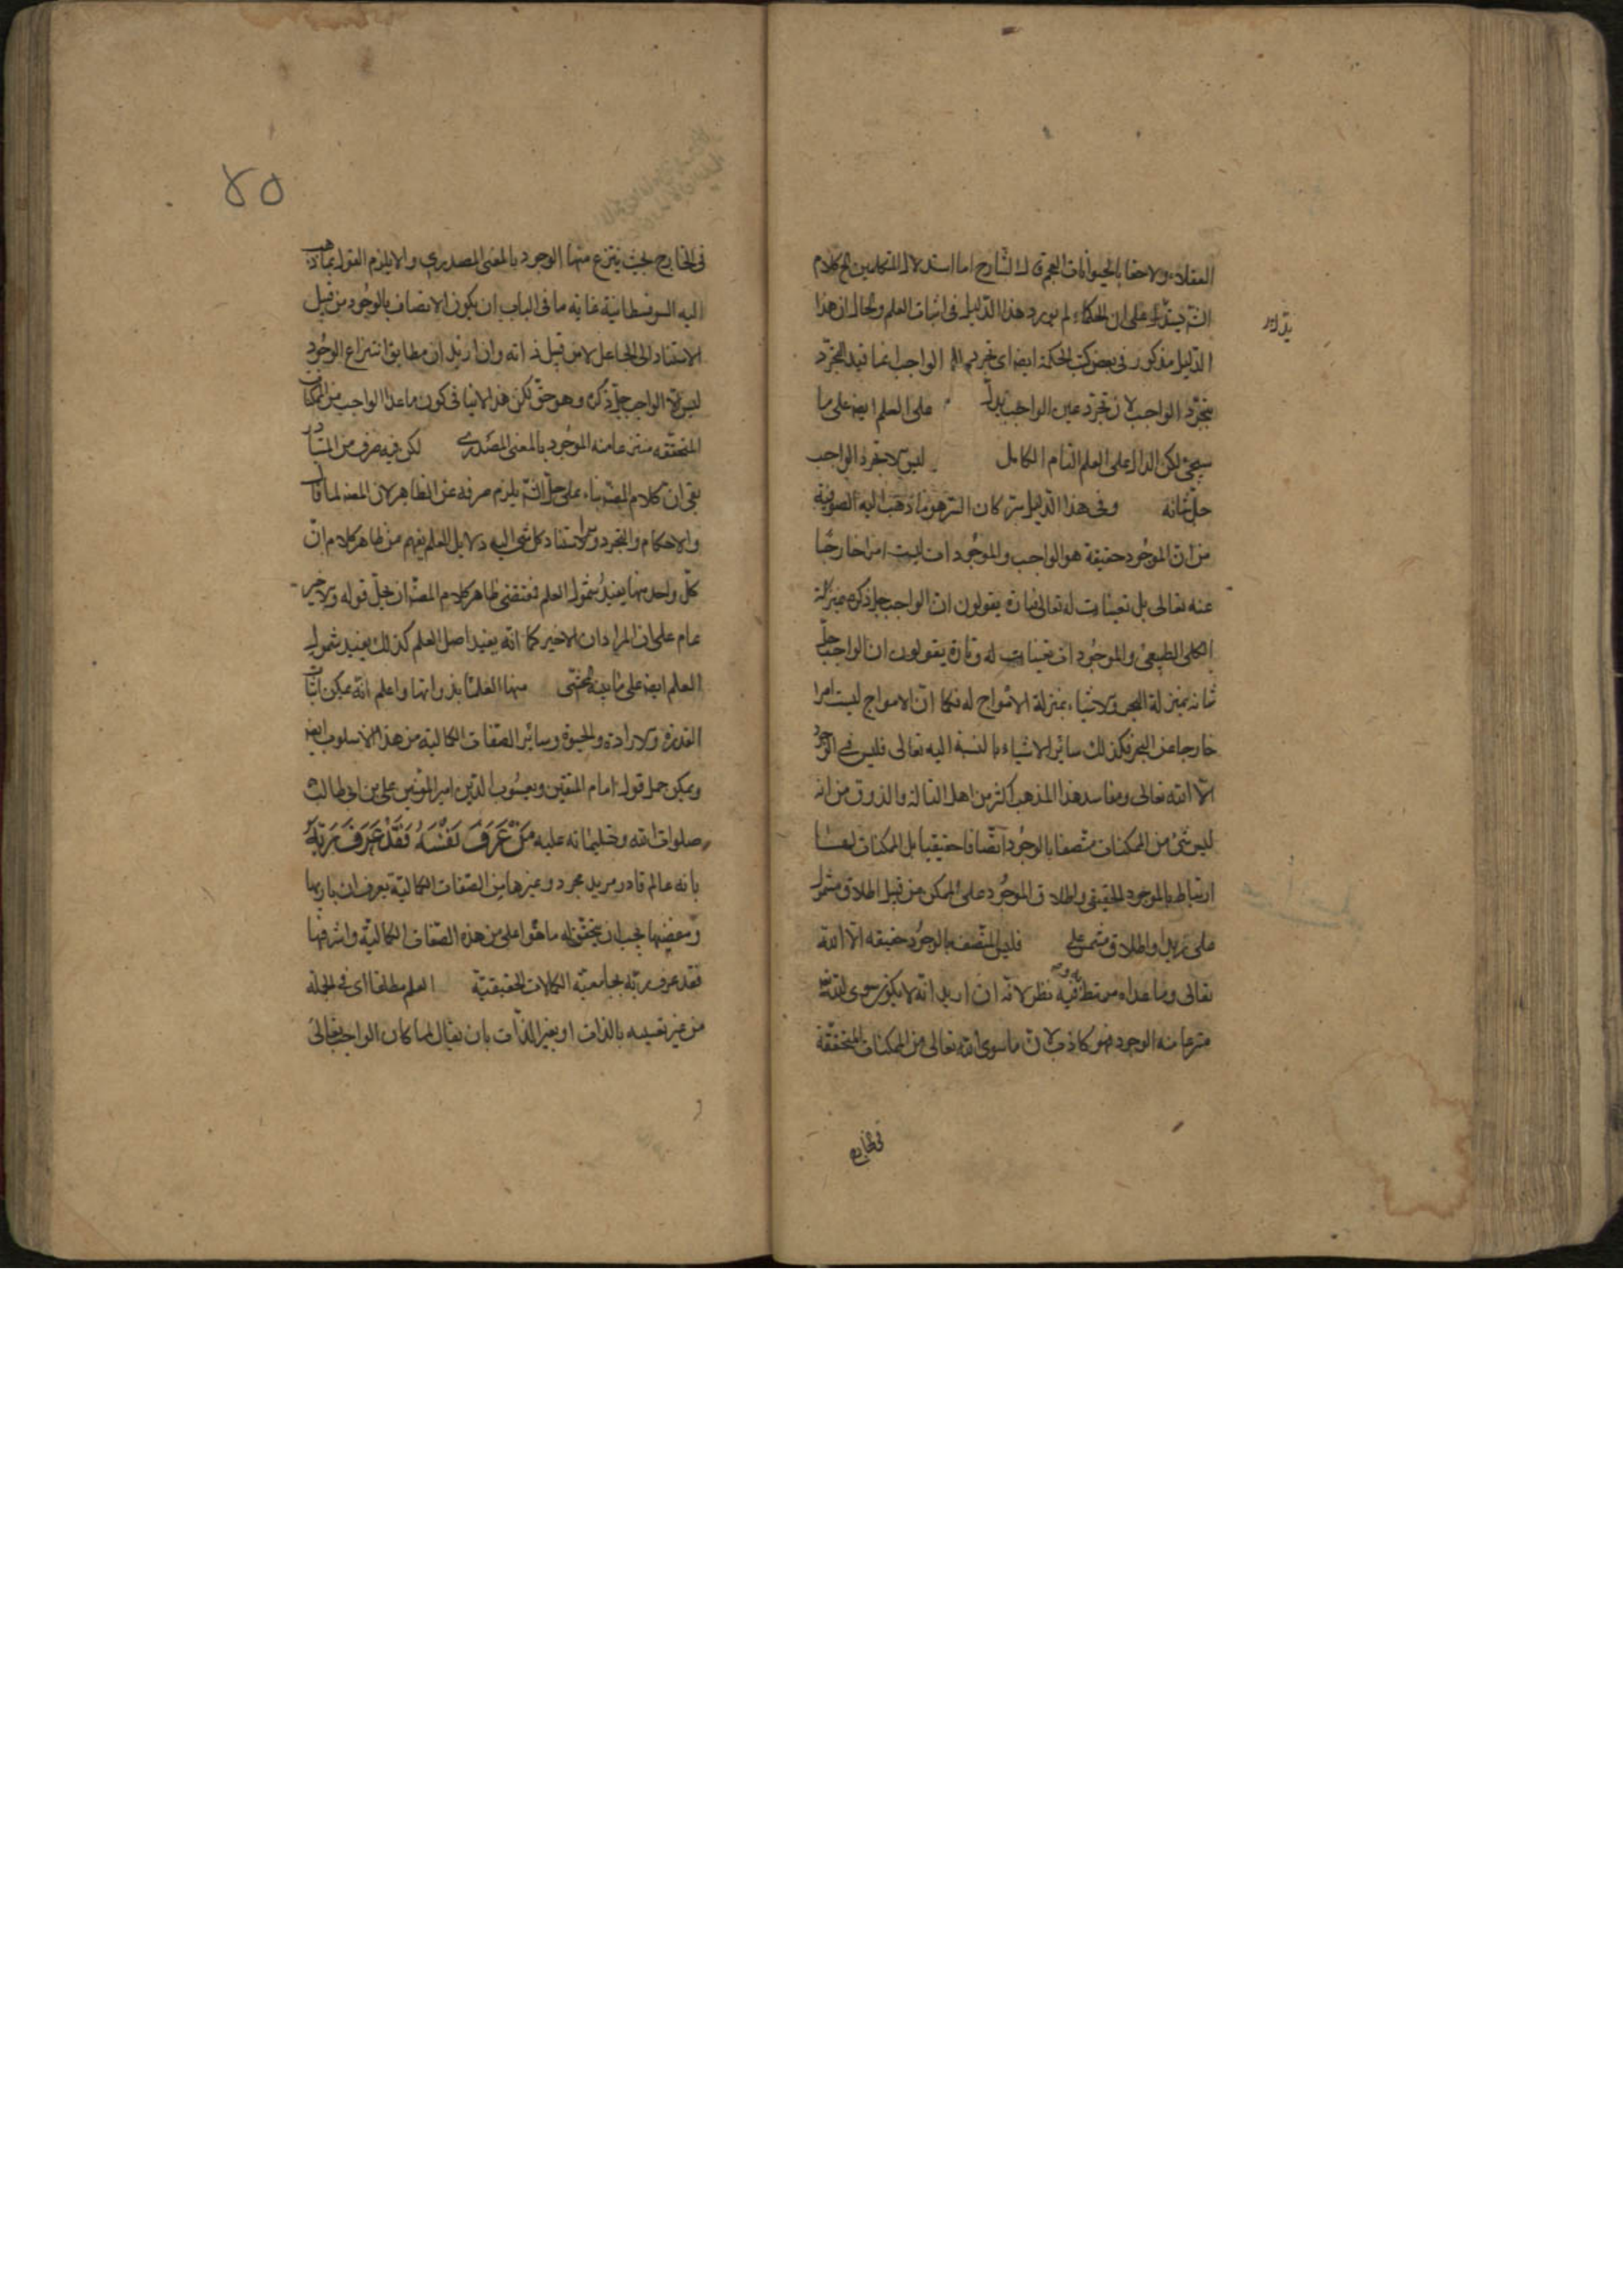 العقلاء ولاحقا بالحيوانات العجم قال الشارح اما استدلال المتكلمين الخ كلام
الش يدل على ان الحكماء لم يورد هذا الدليل فى اثبات العلم والحال ان هذا
يدل
الدليل مذكور فى بعض كتب الحكمة ايضا اى تجرد الواجب انما قيد التجرد
بتجرد الواجب لان تجرد عين الواجب يدل على العلم ايضا على ما
سيجئ لكن الدال على العلم التام الكامل ليس الا تجرد الواجب
جل شانه وفى هذا الدليل سر كان السر هو ما ذهب اليه الصوفية
من ان الموجود حقيقة هو الواجب والموجودات ليست امرا خارجا
عنه تعالى بل تعينات له تعالى فتارة يقولون ان الواجب جل ذكره بمنزلة
الكلى الطبيعى والموجودات تعينات له وتارة يقولون ان الواجب جل
شانه بمنزلة البحر والاشياء بمنزلة الامواج له فكما ان الامواج ليست امرا
خارجا عن البحر فكذلك سائر الاشياء بالنسبة اليه تعالى فليس فى الوجود
الا الله تعالى ومفاسد هذا المذهب اكثر من اهل التاله والذوق من انه
ليس شئ من الممكنات متصفا بالوجود اتصافا حقيقيا بل الممكنات لها
ارتباط بالموجود الحقيقى واطلاق الموجود على الممكن من قبيل اطلاق مشمس
على زيد او اطلاق مشمس على فليس المتصف بالوجود حقيقه الا الله
تعالى وما عداه مرتبط به وفيه نظر لانه ان اريد انه لا يكون سوى الله تعالى
منتزعا منه الوجود فهو كاذب لان ما سوى الله تعالى من الممكنات المتحققة
فى الخارج
٤٥
فى الخارج بحيث ينتزع منها الوجود بالمعنى المصدرى والا يلزم القول بما ذهب
اليه السوفسطائية غاية ما فى الباب ان يكون الاتصاف بالوجود من قبل
الاستناد الى الجاعل لا من قبل ذاته وان اريد ان مطابق انتزاع الوجود
ليس الا الواجب جل ذكره وهو حق لكن هذا لا ينافى كون ما عدا الواجب من الممكنات
المتحققه منتزعا منه الموجود بالمعنى المصدرى لكن فيه صرف عن المتبادر
بقى ان كلام المص بناء على حل الش يلزم صرفه عن الظاهر لان المص لما قال
والاحكام والتجرد واستناد كل شئ اليه دلايل العلم يفهم من ظاهر كلامه ان
كل واحد منها يفيد شمول العلم فمقتضى ظاهر كلام المص ان يحمل قوله والاخير
عام على ان المراد ان الاخير كما انه يفيد اصل العلم كذلك يفيد شمول
العلم ايضا على ما بينه المحشى منها العلم بذواتها واعلم انه يمكن اثبات
القدرة والارادة والحيوة وسائر الصفات الكمالية من هذا الاسلوب ايضا
ويمكن حمل قول امام المتقين ويعسوب الدين امير المؤمنين على بن ابى طالب
صلوات الله وتسليماته عليه مَنْ عَرَفَ نَفْسَهُ فَقَدْ عَرَفَ رَبَّهُ
بانه عالم قادر مريد مجرد وغيرها من الصفات الكمالية يعرف ان باريها
ومفيضها يجب ان يتحقق له ما هو اعلى من هذه الصفات الكمالية واشرفها
فقد عرف ربه بجامعية الكمالات الحقيقية العلم مطلقا اى فى الجملة
من غير تقييده بالذات او بغير الذات بان يقال لما كان الواجب تعالى